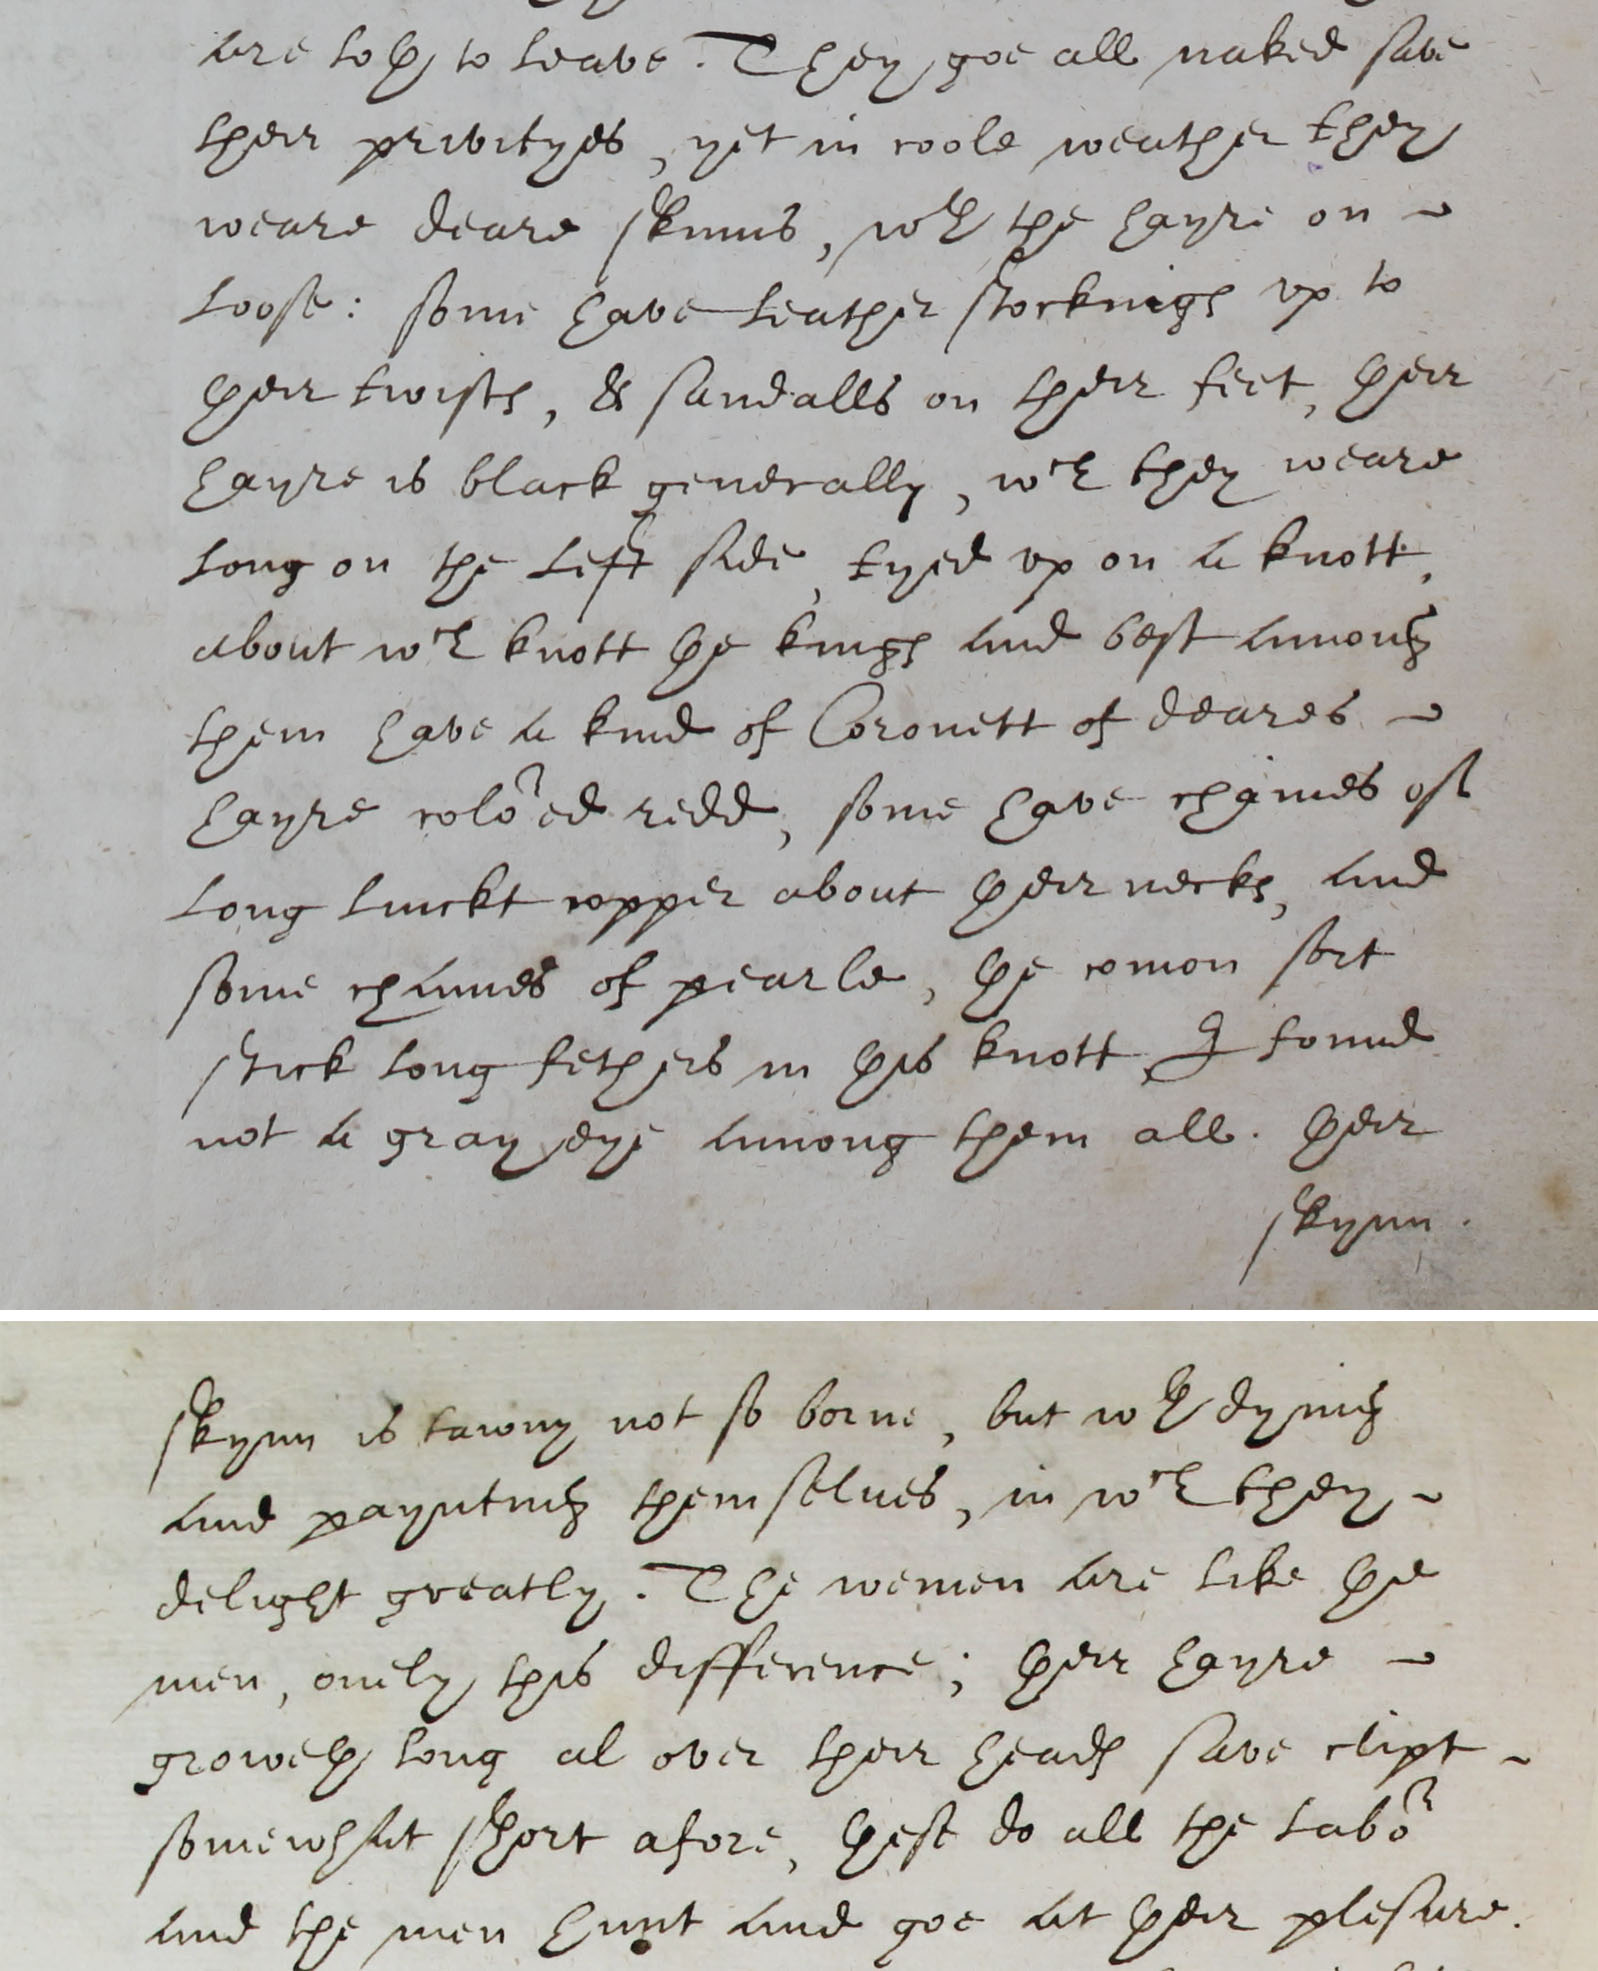 are loth to leave. They goe all naked save
their privityes, yet in coole weather they
weare deare skinns, wth the hayre on
loose: some have leather stockings vp to
their twists, & sandalls on their feet, their
hayre is black generally, wch they weare
long on the left side, tyed vp on a knott,
about wch knott the kings and best among
them have a kind of Coronett of deares
hayre colored redd, some have chaines of
long linckt copper about their necks, and
some chaines of pearle, the comon sort
stick long fethers in this knott, I found
not a gray eye among them all. their
skynn.
skynn is tawny not so borne, but wth dying
and paynting themselues, in wch they
delight greatly. The wemen are like the
men, onely this difference; their hayre
groweth long al over their heads save clipt
somewhat short afore, these do all the labor
and the men hunt and goe at their plesure.